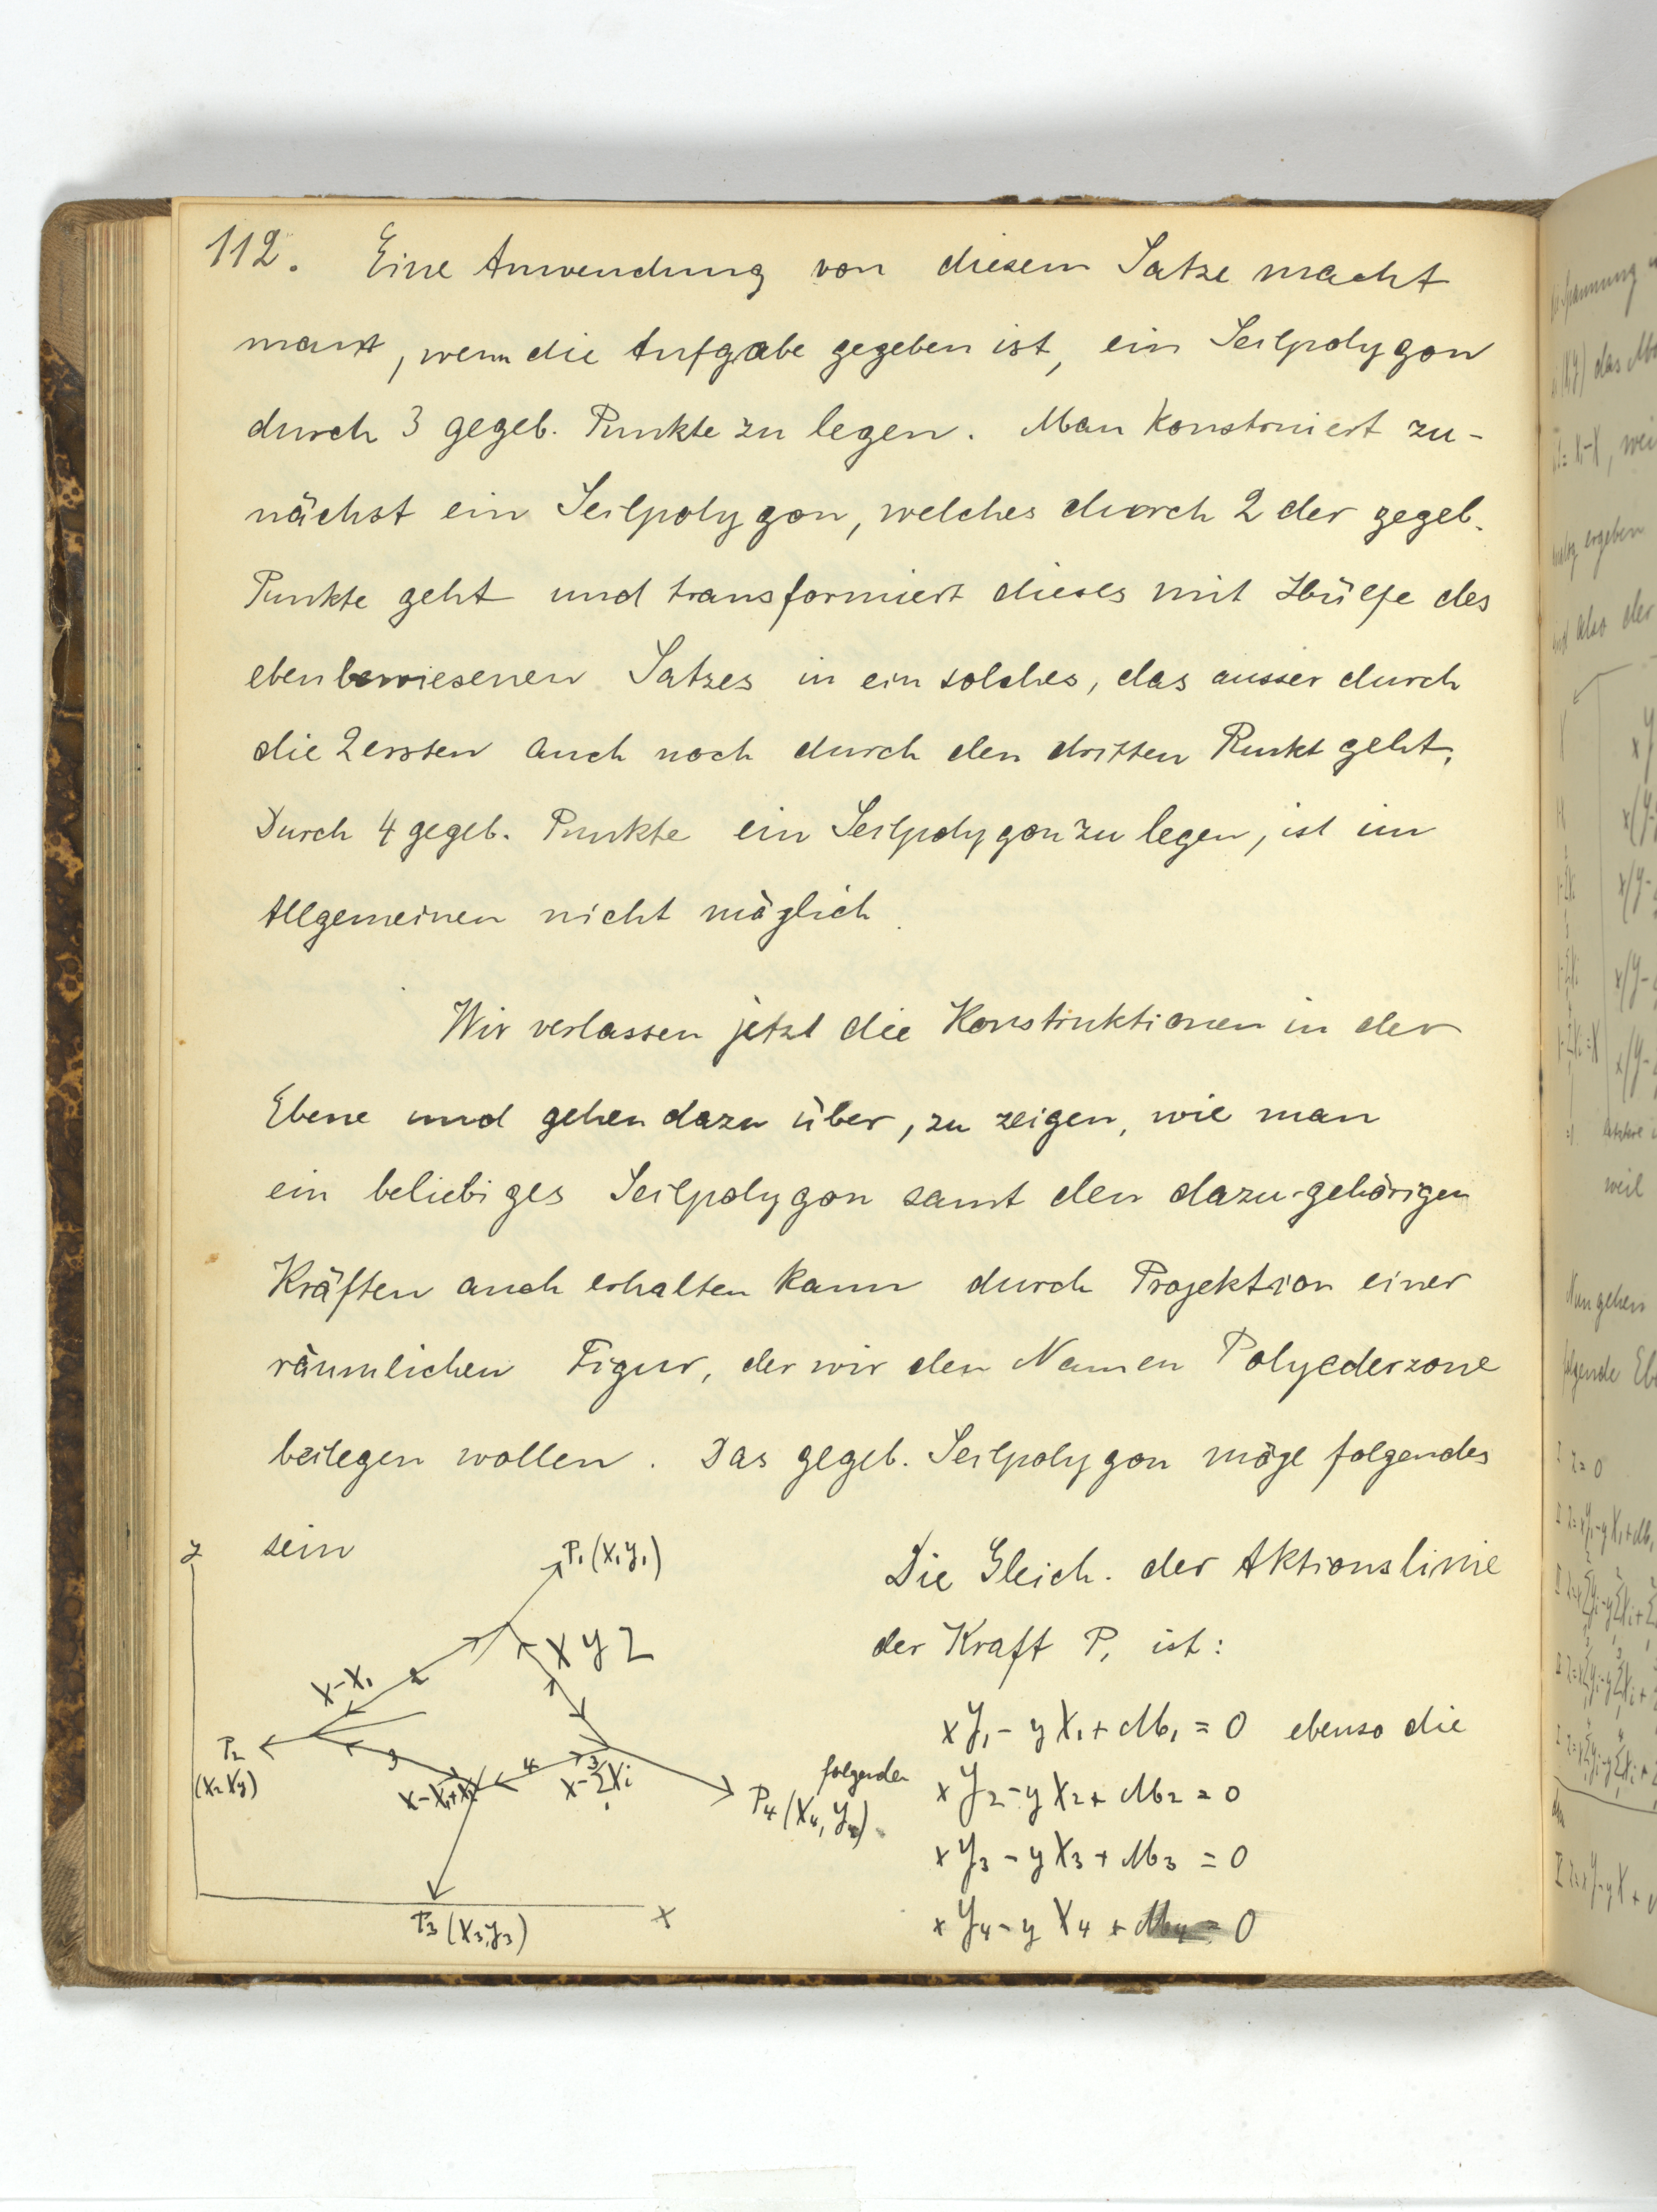 112. Eine Anwendung von diesem Satze macht
man, wenn die Aufgabe gegeben ist, ein Seilpolygon
durch 3 gegeb. Punkte zu legen. Man konstruiert zu-
nächst ein Seilpolygon, welches durch 2 der gegeb.
Punkte geht und transformiert dieses mit Hülfe des
eben bewiesenen Satzes in ein solches, das ausser durch
die 2 ersten auch noch durch den dritten Punkt geht.
Durch 4 gegeb. Punkte ein Seilpolygon zu legen, ist im
Allgemeinen nicht möglich.
Wir verlassen jetzt die Konstruktionen in der
Ebene und gehen dazu über, zu zeigen, wie man
ein beliebiges Seilpolygon samt den dazu gehörigen
Kräften auch erhalten kann durch Projektion einer
räumlichen Figur, der wir den Namen Polyederzone
beilegen wollen. Das gegeb. Seilpolygon möge folgendes
sein
y
P₁ (X₁ Y₁)
X Y Z
X-X₁
2
P₂
(X₂ Y₂)
3
X-X₁+X₂
4
3
X-ΣXi
1
P₄ (X₄, Y₄)
P₃ (X₃, Y₃)
x
Die Gleich. der Aktionslinie
der Kraft P₁ ist:
xY₁ - yX₁ + M₁ = 0 ebenso die
folgenden xY₂ - yX₂ + M₂ = 0
xY₃ - yX₃ + M₃ = 0
xY₄ - yX₄ + M₄ = 0
Spannung
das
weil
ergeben
also der
weil
Nun gehen
folgende